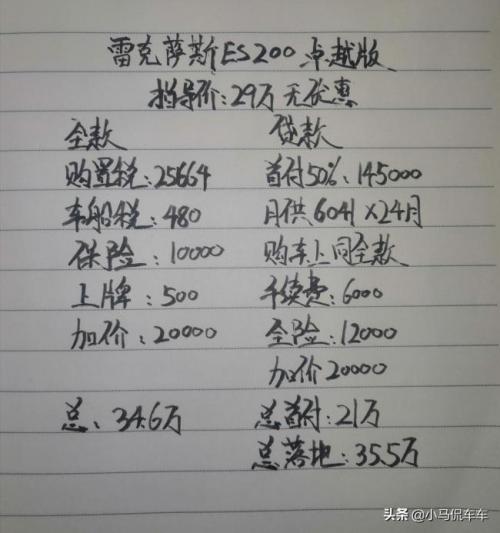 雷克萨斯ES200 卓越版
指导价:29万 无优惠
全款
购置税:25664
车船税:480
保险:10000
上牌:500
加价:20000
总:34.6万
贷款
首付50%:145000
月供6041×24月
购车上同全款
手续费:6000
全险:12000
加价20000
总首付:21万
总落地:35.5万
头条 @小马侃车车